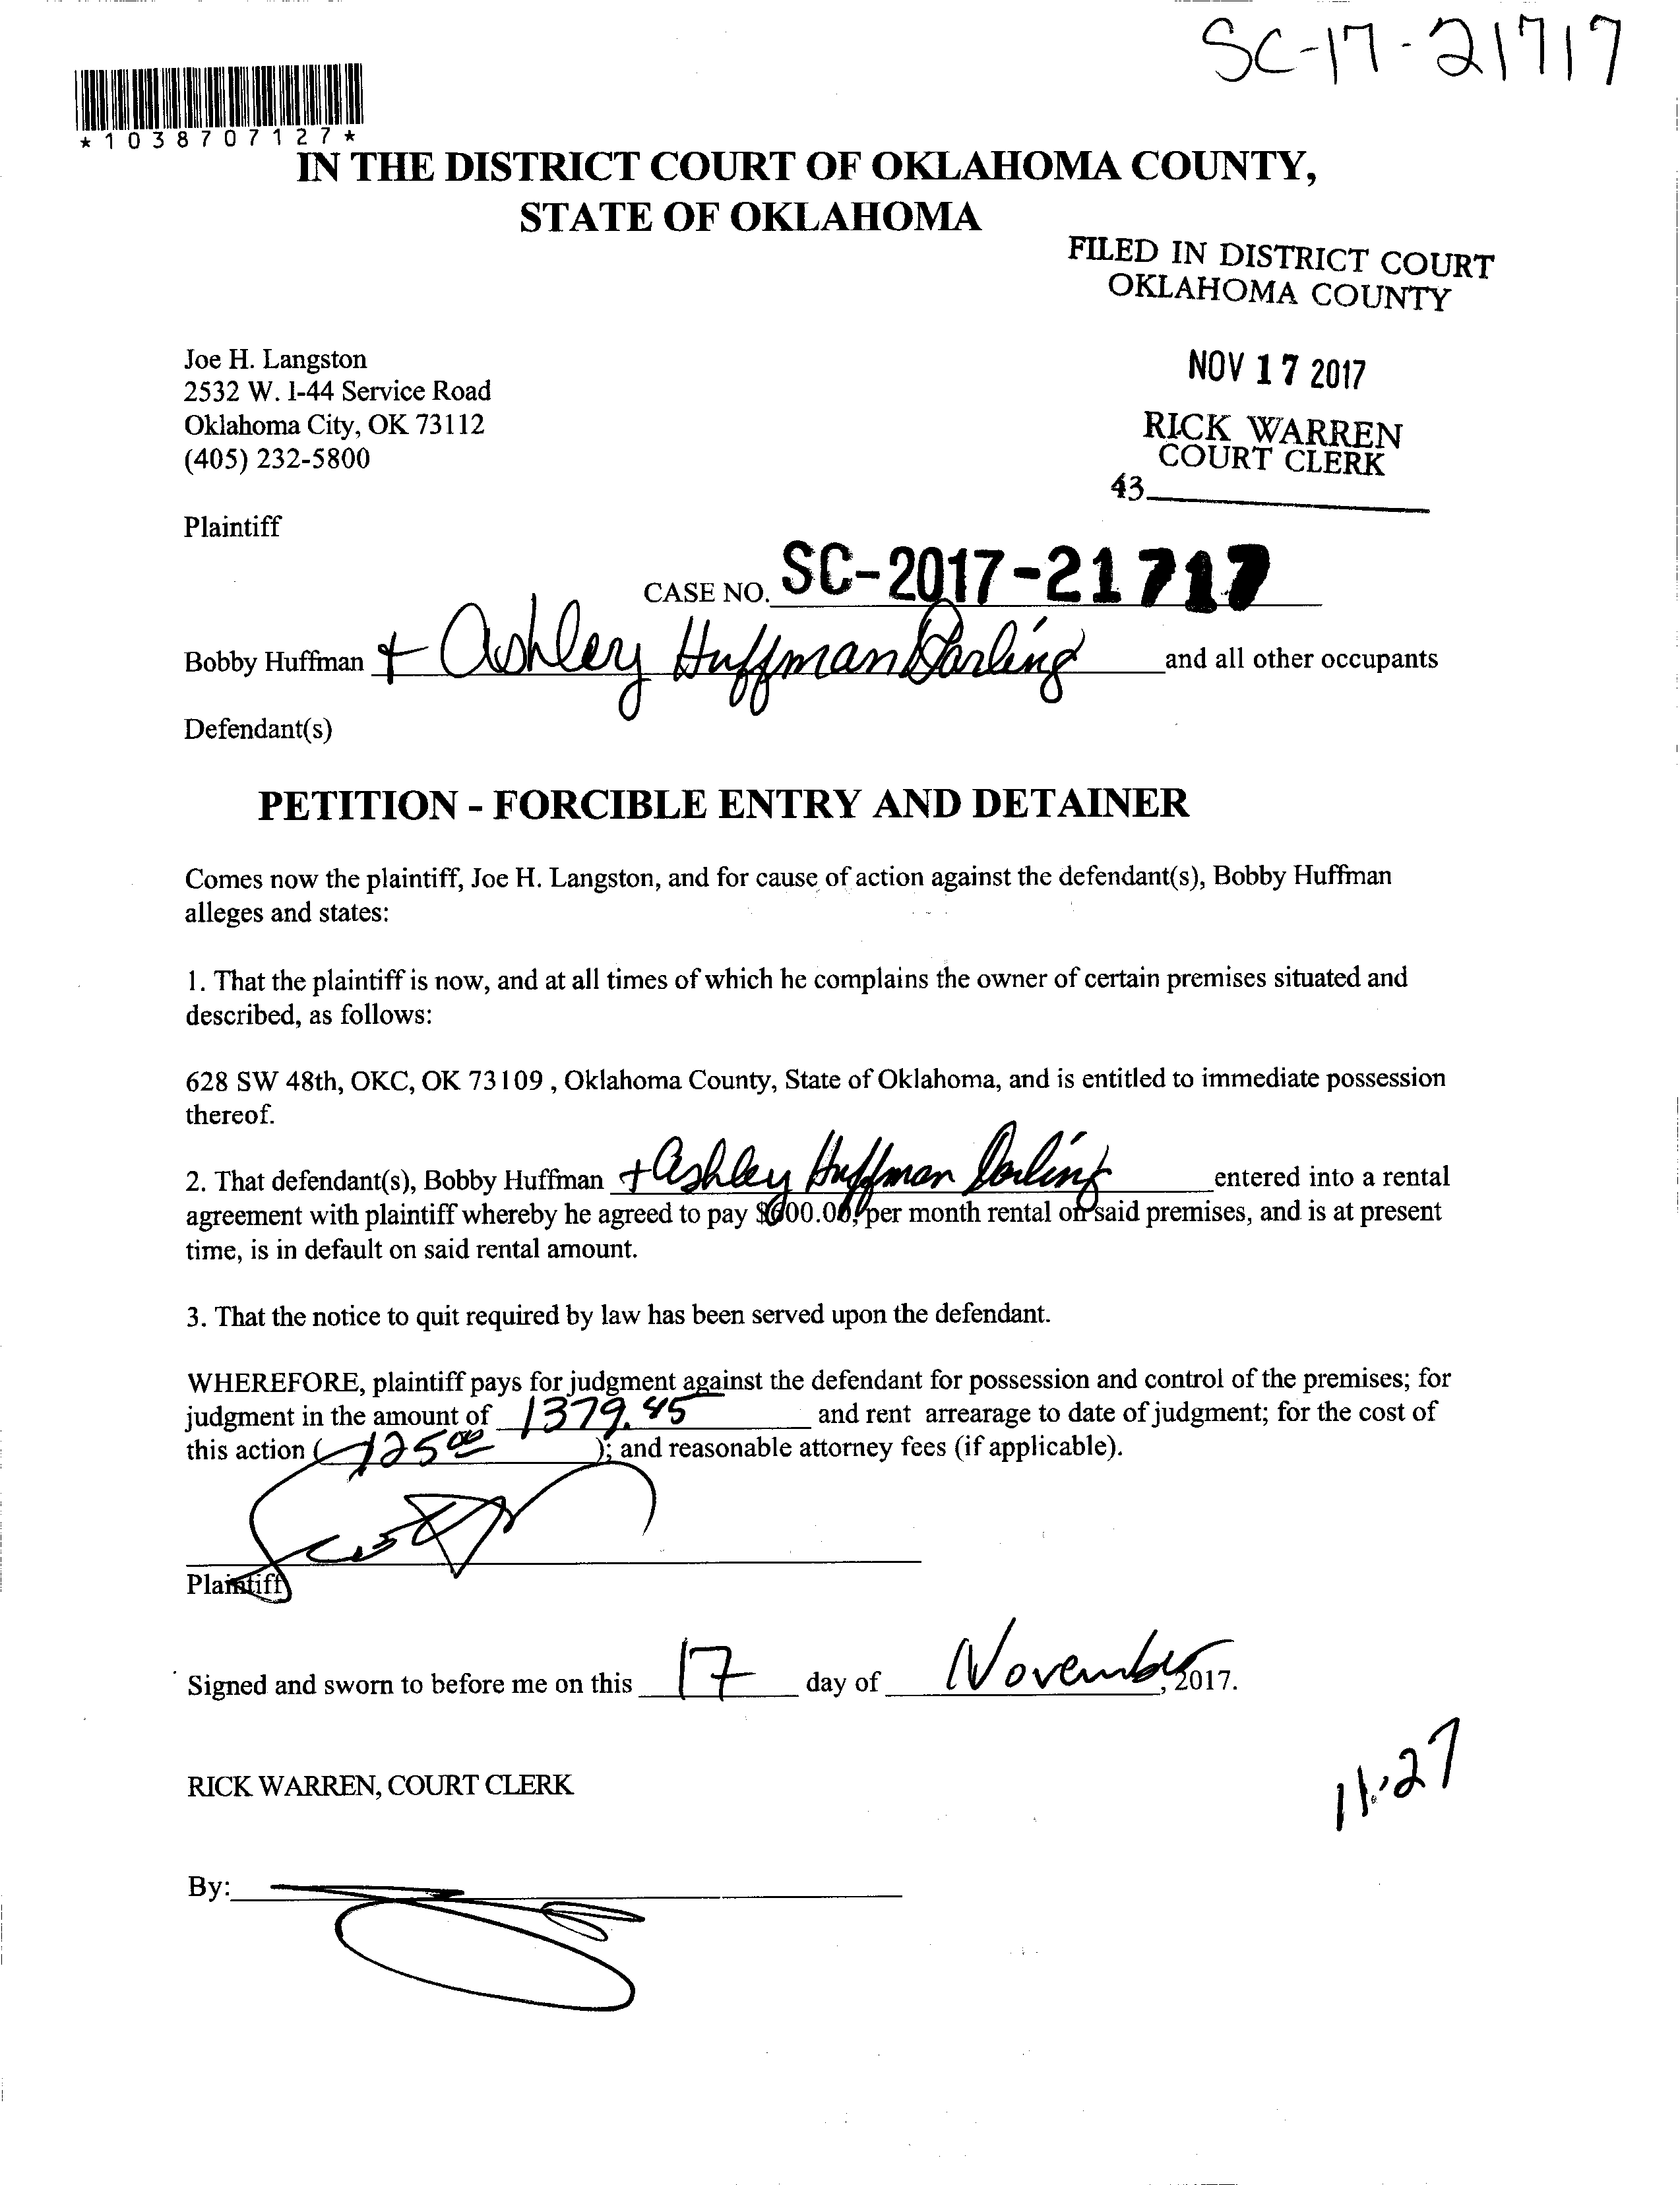 SC-17-21717
*1038707127*
IN THE DISTRICT COURT OF OKLAHOMA COUNTY,
STATE OF OKLAHOMA
FILED IN DISTRICT COURT
OKLAHOMA COUNTY
NOV 17 2017
RICK WARREN
COURT CLERK
43
Joe H. Langston
2532 W. I-44 Service Road
Oklahoma City, OK 73112
(405) 232-5800
Plaintiff
CASE NO. SC-2017-21717
Bobby Huffman + Ashley Huffman Darling and all other occupants
Defendant(s)
PETITION - FORCIBLE ENTRY AND DETAINER
Comes now the plaintiff, Joe H. Langston, and for cause of action against the defendant(s), Bobby Huffman
alleges and states:
1. That the plaintiff is now, and at all times of which he complains the owner of certain premises situated and
described, as follows:
628 SW 48th, OKC, OK 73109 , Oklahoma County, State of Oklahoma, and is entitled to immediate possession
thereof.
2. That defendant(s), Bobby Huffman + Ashley Huffman Darling entered into a rental
agreement with plaintiff whereby he agreed to pay $600.00, per month rental on said premises, and is at present
time, is in default on said rental amount.
3. That the notice to quit required by law has been served upon the defendant.
WHEREFORE, plaintiff pays for judgment against the defendant for possession and control of the premises; for
judgment in the amount of 1379.45 and rent arrearage to date of judgment; for the cost of
this action (125 00); and reasonable attorney fees (if applicable).
Plaintiff
Signed and sworn to before me on this 17 day of November, 2017.
RICK WARREN, COURT CLERK
11:27
By: